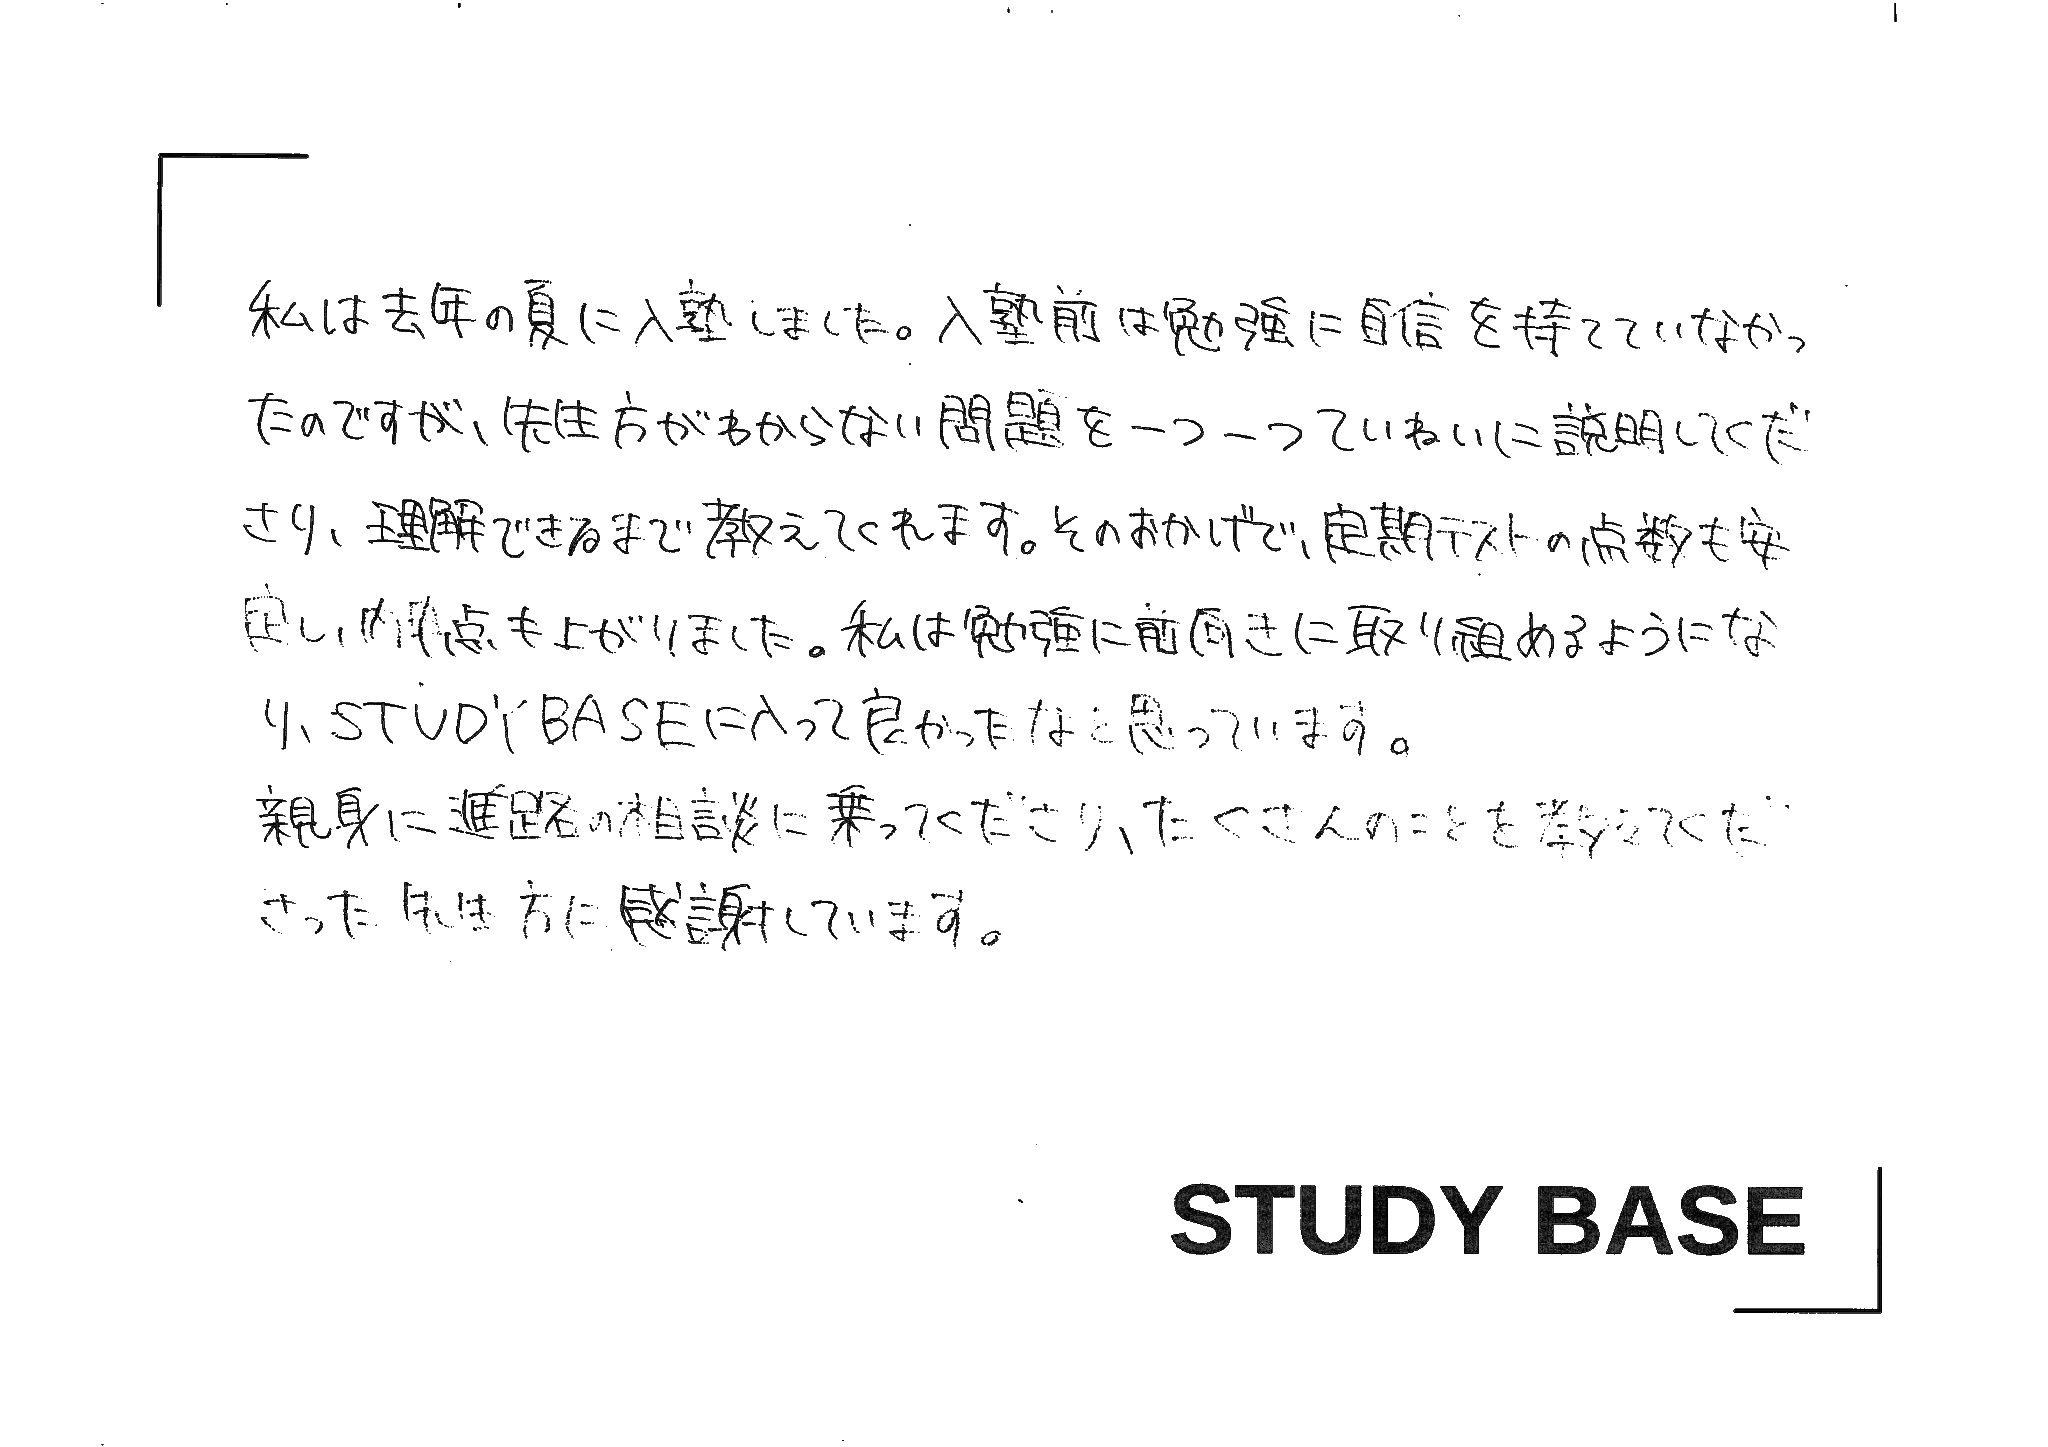 私は去年の夏に入塾しました。入塾前は勉強に自信を持てていなかっ
たのですが、先生方がわからない問題を一つ一つていねいに説明してくだ
さり、理解できるまで教えてくれます。そのおかげで、定期テストの点数も安
定し、内申点も上がりました。私は勉強に前向きに取り組めるようにな
り、STUDY BASEに入って良かったなと思っています。
親身に進路の相談に乗ってくださり、たくさんのことを教えてくだ
さった先生方に感謝しています。
STUDY BASE